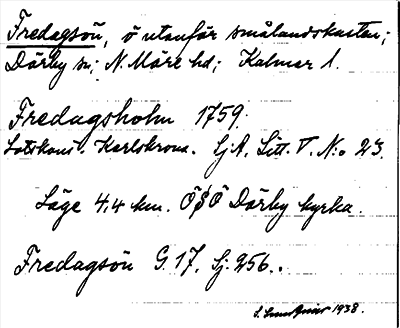 Fredagsön, ö utanför smålandskusten;
Dörby sn; N. Möre hd; Kalmar l.
Fredagsholm 1759.
Lotskont. Karlskrona. Sj.A. Litt. V. N:o 23.
Läge 4,4 km. ÖSÖ Dörby kyrka.
Fredagsön G. 17. Sj. 256.
1938.